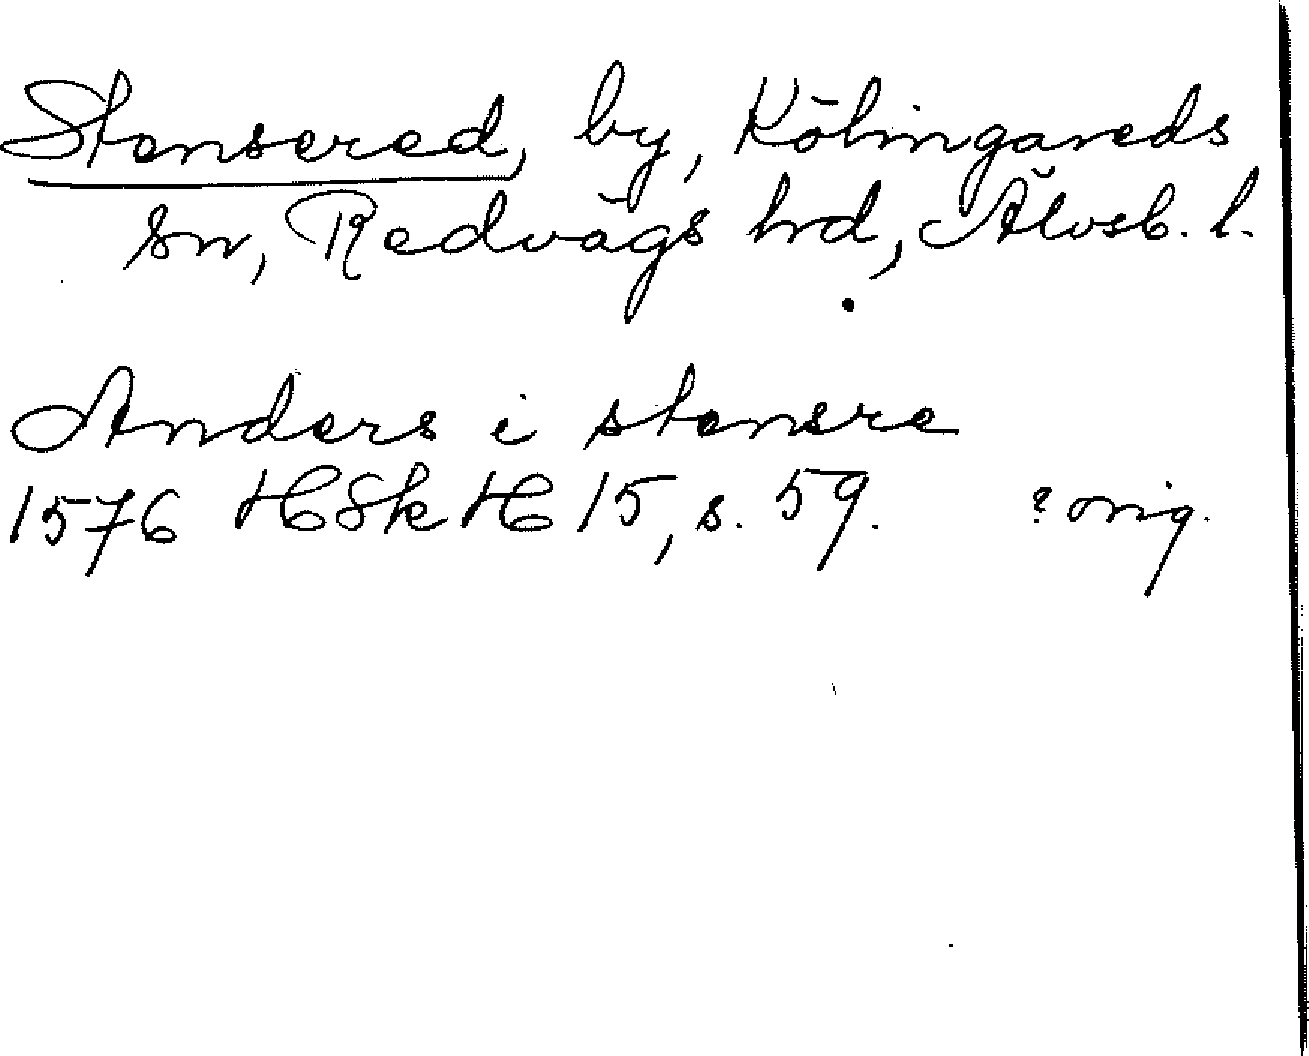 Stensered, by, Kölingareds
sn, Redvägs hrd, Älvsb. l.
Anders i stensre
1576 HSkH 15, s. 59. ? orig.